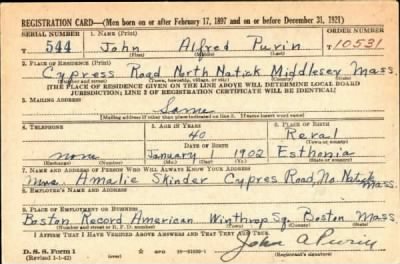 REGISTRATION CARD—(Men born on or after February 17, 1897 and on or before December 31, 1921)
SERIAL NUMBER 1. NAME (Print) ORDER NUMBER
T 544 John Alfred Purin T 10531
(First) (Middle) (Last)
2. PLACE OF RESIDENCE (Print)
Cypress Road North Natick Middlesex Mass.
(Number and street) (Town, township, village, or city) (County) (State)
[THE PLACE OF RESIDENCE GIVEN ON THE LINE ABOVE WILL DETERMINE LOCAL BOARD
JURISDICTION; LINE 2 OF REGISTRATION CERTIFICATE WILL BE IDENTICAL]
3. MAILING ADDRESS
Same
[Mailing address if other than place indicated on line 2. If same insert word same]
4. TELEPHONE 5. AGE IN YEARS 6. PLACE OF BIRTH
40 Reval
DATE OF BIRTH (Town or county)
none January 1902 Esthonia
(Exchange) (Number) (Mo.) (Day) (Yr.) (State or country)
7. NAME AND ADDRESS OF PERSON WHO WILL ALWAYS KNOW YOUR ADDRESS
Mrs. Amalie Skinder Cypres Road, No. Natick Mass.
8. EMPLOYER'S NAME AND ADDRESS
9. PLACE OF EMPLOYMENT OR BUSINESS
Boston Record American Winthrop Sq. Boston Mass
(Number and street or R. F. D. number) (Town) (County) (State)
I AFFIRM THAT I HAVE VERIFIED ABOVE ANSWERS AND THAT THEY ARE TRUE.
John A Purin
D. S. S. Form 1
(Revised 1-1-42) (over) GPO (Registrant's signature)